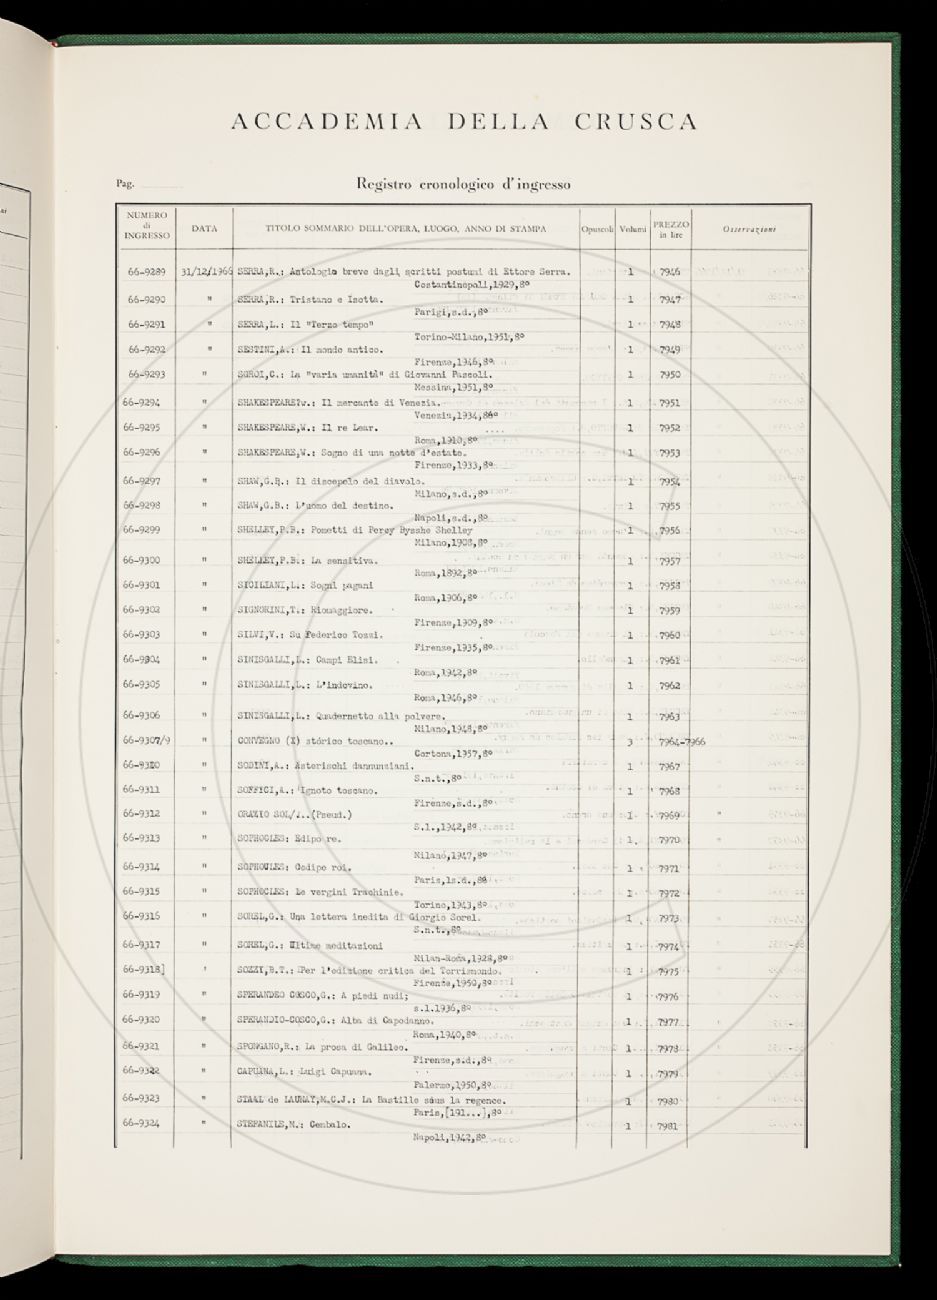 ACCADEMIA DELLA CRUSCA
Pag.
Registro cronologico d'ingresso
NUMERO di INGRESSO DATA TITOLO SOMMARIO DELL'OPERA, LUOGO, ANNO DI STAMPA Opuscoli Volumi PREZZO in lire Osservazioni
66-9289 31/12/1966 SERRA,R.: Antologia breve dagli scritti postumi di Ettore Serra. 1 7946
Costantinopoli,1929,8º
66-9290 " SERRA,R.: Tristano e Isotta. 1 7947
Parigi,s.d.,8º
66-9291 " SERRA,L.: Il "Terzo tempo" 1 7948
Torino-Milano,1951,8º
66-9292 " SESTINI,A.: Il mondo antico. 1 7949
Firenze,1946,8º
66-9293 " SGROI,C.: La "varia umanità" di Giovanni Pascoli. 1 7950
Messina,1951,8º
66-9294 " SHAKESPEARE?w.: Il mercante di Venezia. 1 7951
Venezia,1934,8º
66-9295 " SHAKESPEARE,W.: Il re Lear. 1 7952
Roma,1910,8º
66-9296 " SHAKESPEARE,W.: Sogno di una notte d'estate. 1 7953
Firenze,1933,8º
66-9297 " SHAW,G.B.: Il discepolo del diavolo. 1 7954
Milano,s.d.,8º
66-9298 " SHAW,G.B.: L'uomo del destino. 1 7955
Napoli,s.d.,8º
66-9299 " SHELLEY,P.B.: Poemetti di Percy Bysshe Shelley 1 7956
Milano,1908,8º
66-9300 " SHELLEY,P.B.: La sensitiva. 1 7957
Roma,1892,8º
66-9301 " SICILIANI,L.: Sogni pagani 1 7958
Roma,1906,8º
66-9302 " SIGNORINI,T.: Riomaggiore. 1 7959
Firenze,1909,8º
66-9303 " SILVI,V.: Su Federico Tozzi. 1 7960
Firenze,1935,8º
66-9304 " SINISGALLI,L.: Campi Elisi. 1 7961
Roma,1942,8º
66-9305 " SINISGALLI,L.: L'indovino. 1 7962
Roma,1946,8º
66-9306 " SINISGALLI,L.: Quadernetto alla polvere. 1 7963
Milano,1948,8º
66-9307/9 " CONVEGNO (X) stórico toscano.. 3 7964-7966
Cortona,1957,8º
66-9310 " SODINI,A.: Asterischi dannunziani. 1 7967
S.n.t.,8º
66-9311 " SOFFICI,A.: Ignoto toscano. 1 7968
Firenze,s.d.,8º
66-9312 " ORAZIO (Pseud.) 1 7969
S.l.,1942,8º
66-9313 " SOPHOCLES: Edipo re. 1 7970
Milano,1947,8º
66-9314 " SOPHOCLES: Oedipe roi. 1 7971
Paris,1s.d.,8º
66-9315 " SOPHOCLES: Le vergini Trachinie. 1 7972
Torino,1943,8º
66-9316 " SOREL,G.: Una lettera inedita di Giorgio Sorel. 1 7973
S.n.t.,8º
66-9317 " SOREL,G.: Ultime meditazioni 1 7974
Milan-Roma,1928,8º
66-9318] ' SOZZI,B.T.: Per l'edizione critica del Torrismondo. 1 7975
Firenze,1950,8º
66-9319 " SPERANDEO COSCO,G.: A piedi nudi; 1 7976
s.l.1936,8º
66-9320 " SPERANDIO-COSCO,G.: Alba di Capodanno. 1 7977
Roma,1940,8º
66-9321 " SPONGANO,R.: La prosa di Galileo. 1 7978
Firenze,s.d.,8º
66-9322 " CAPUANA,L.: Luigi Capuana. 1 7979
Palermo,1950,8º
66-9323 " STAAL de LAUNAY,M.C.J.: La Bastille sous la regence. 1 7980
Paris,[191...],8º
66-9324 " STEFANILE,M.: Cembalo. 1 7981
Napoli,1942,8º